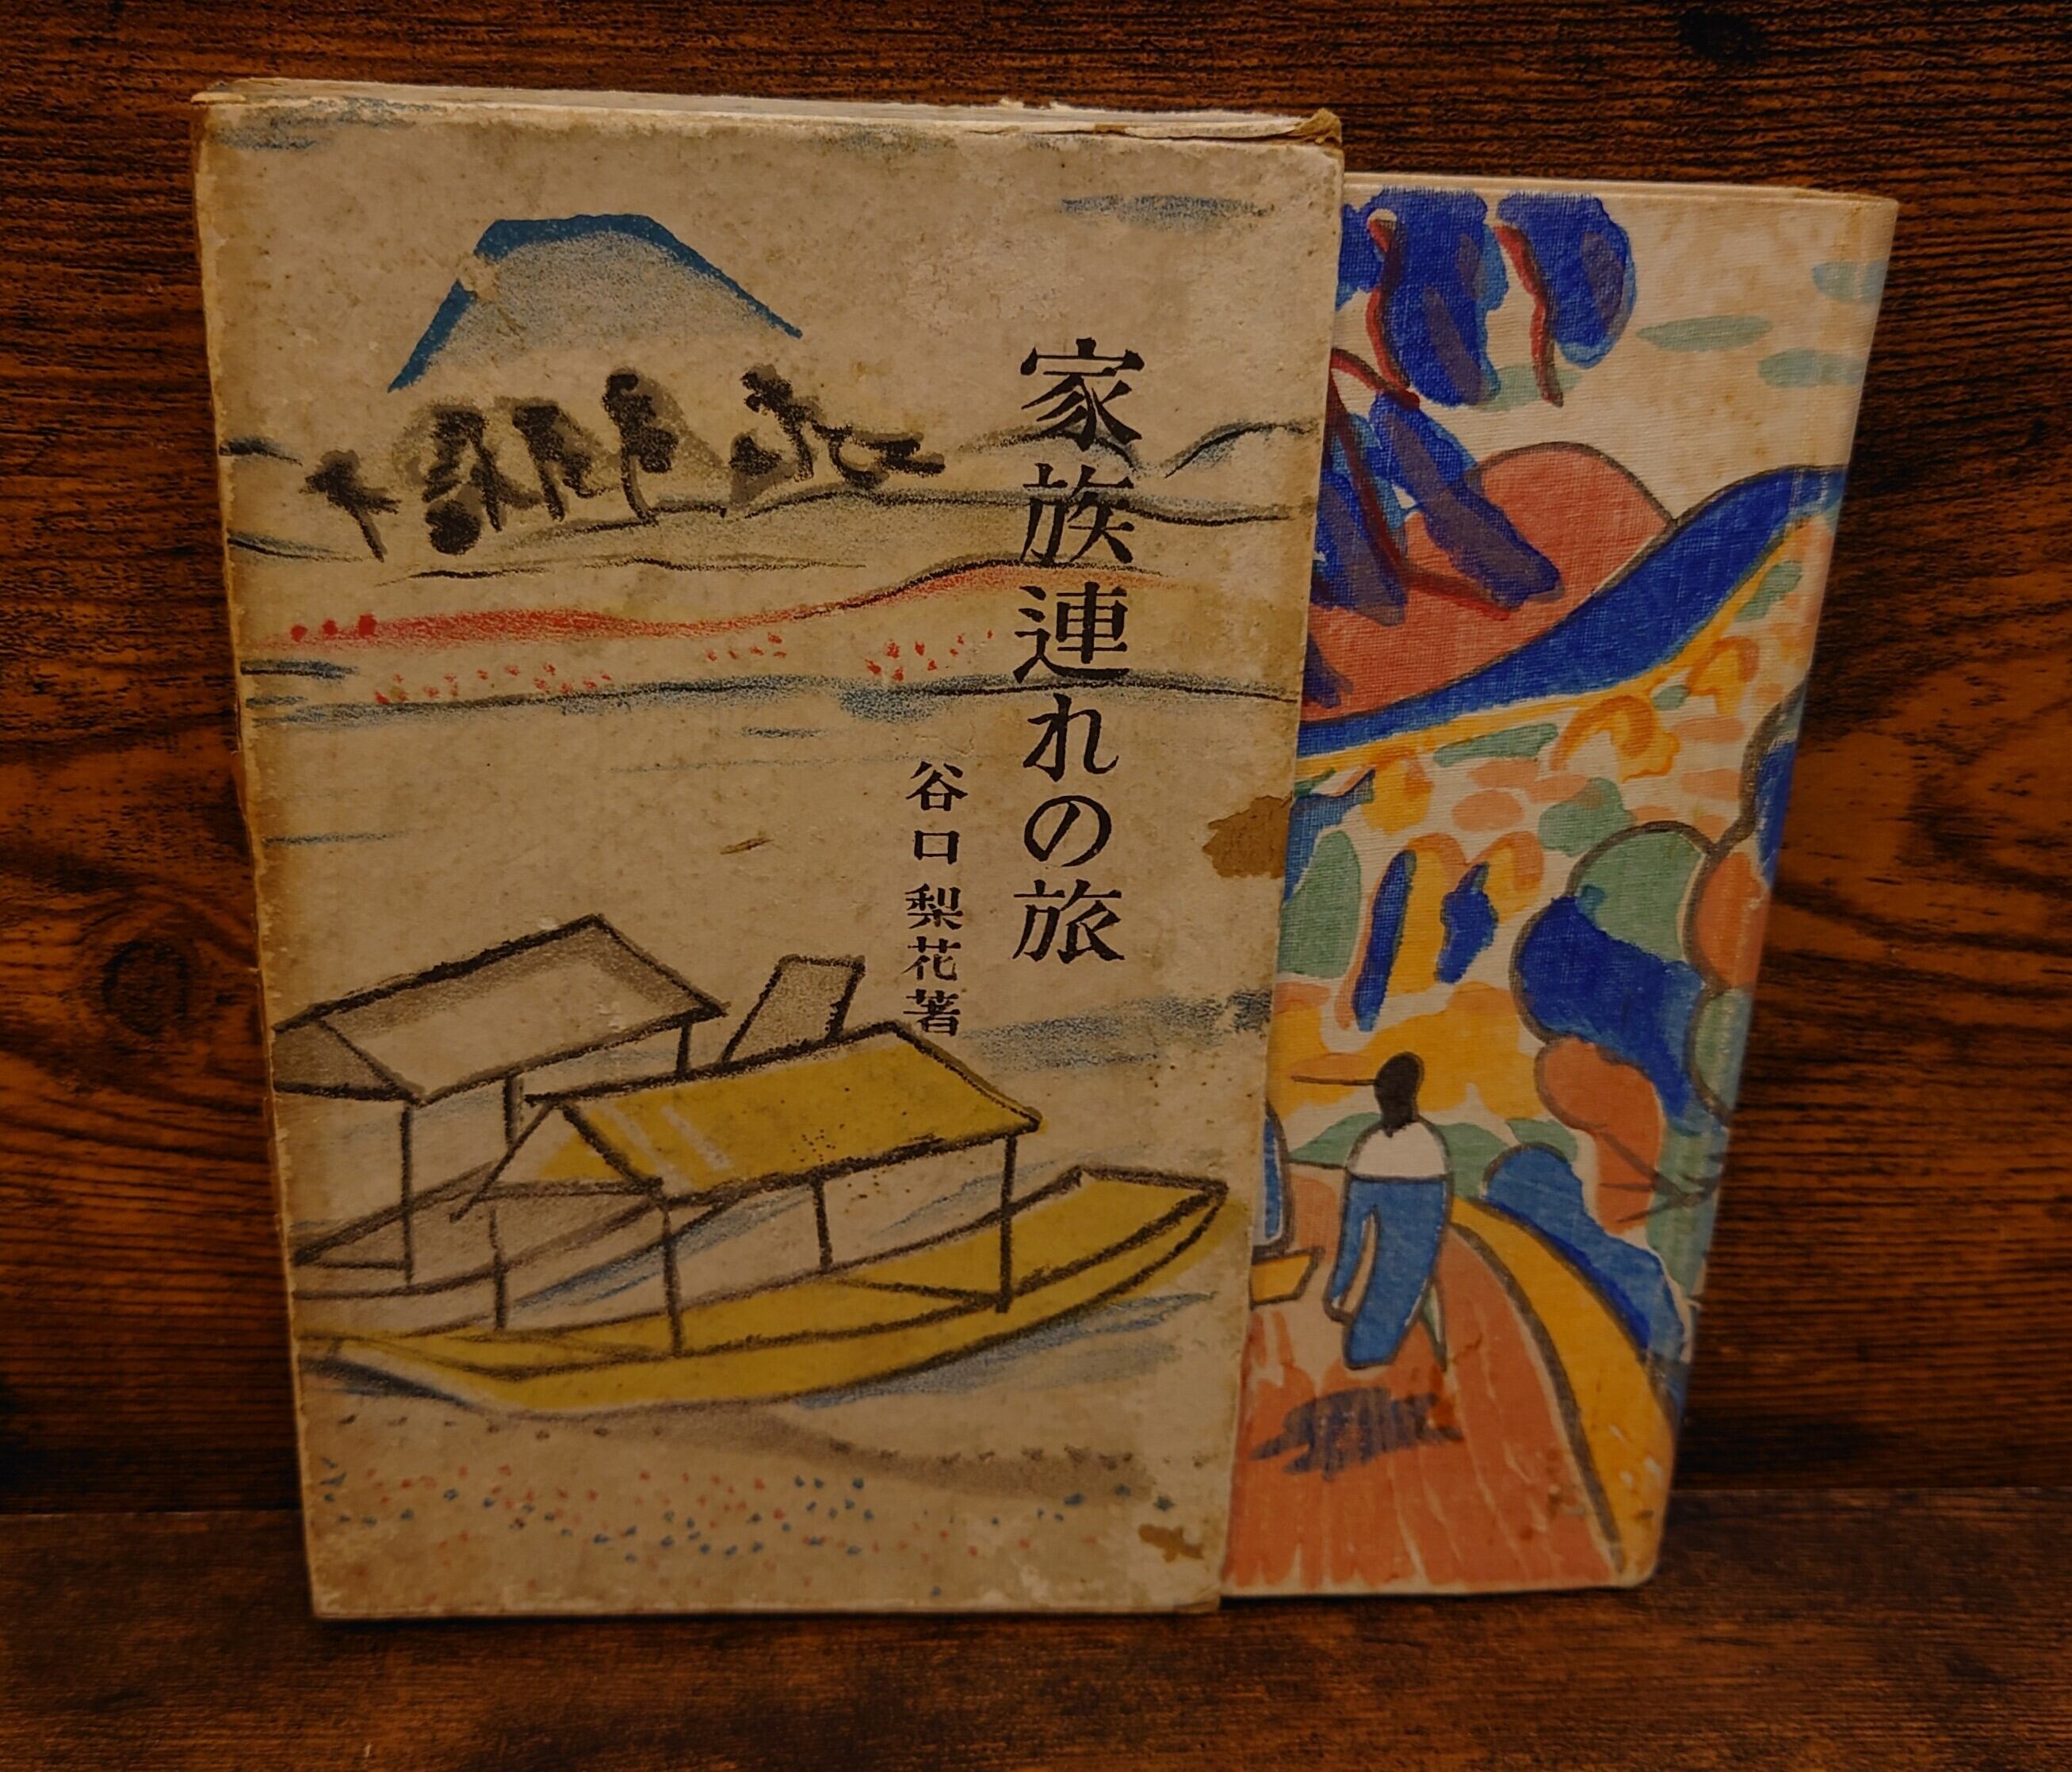 家族連れの旅
谷口梨花著